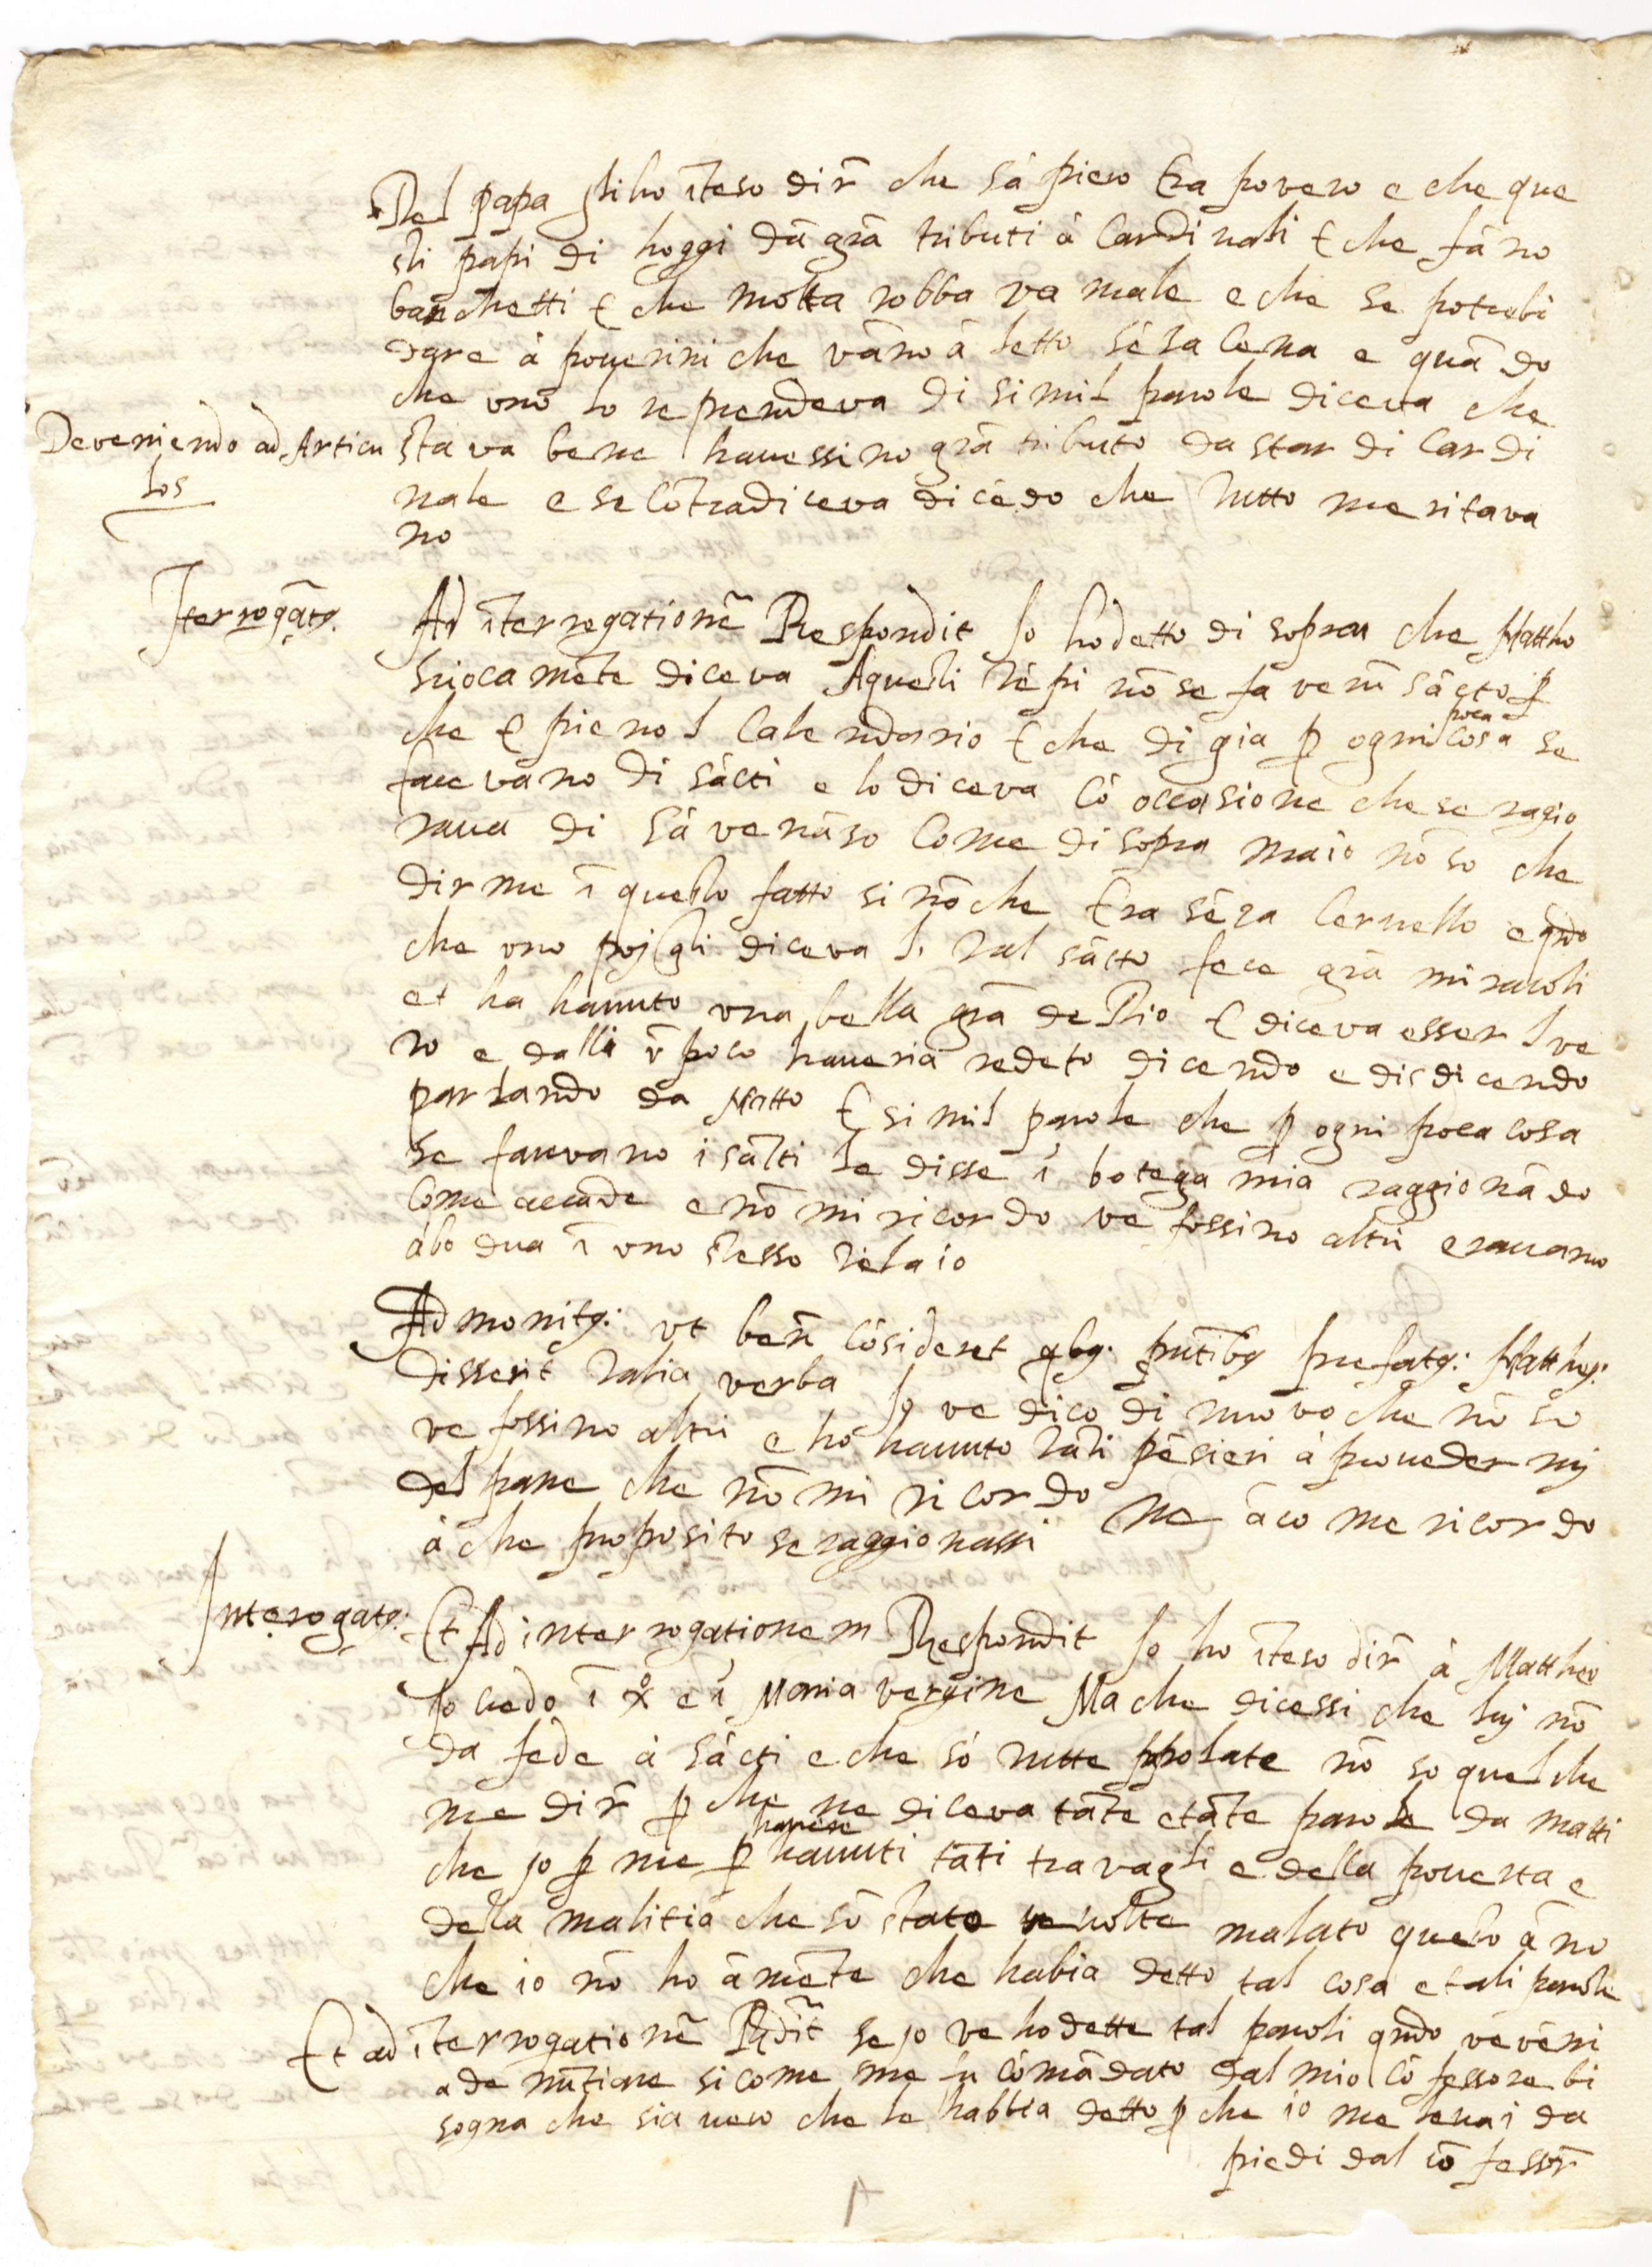 Del papa gli ho īteso dir̃ che sā piero Era povero e che que
sti papi di hoggi dā grā tributi à Cardinali E che fāno
banchetti E che molta robba va male e che se potrebi
dare à poverini che vāno à letto sēza Cena e quādo
che uno lo reprendeva di simil parole diceva che
Deveniendo ad Articu
los
stava bene havessino grā tributo da star di Cardi
nale e se Cōtradiceva dicēdo che tutto meritava
no
Iterrogats.
Ad īterrogationē Respondit Io ho detto di sopra che Mattho
Sciocamēte diceva A questi tēpi nō se fa verū sācto ꝑ
che E pieno l Calendario E che di gia ꝑ ogni poca cosa se
facevano di sācti e lo diceva Cō occasione che se ragio
nava di Sā venāso Come di sopra ma io nō so che
dirme ī questo fatto si nō che Era sēza Cervello e qn̄do
che uno poi gli diceva l. tal sācto fece grā miracoli
et ha havuto una bella grā de Dio E diceva esser l ve
ro e dalli ū poco haveria redeto dicendo e disdicendo
parlando da Matto E simil parole che ꝑ ogni poca cosa
se facevano i sāti le disse ī botega mia raggionādo
Come accade e nō mi ricordo ve fossino altri eravamo
ābo dua ī uno stesso telaio
Admonits: ut ben̄ cōsideret qbs. pn̄tibs prefats: Matthes:
disserit talia verba Io ve dico di nuovo che nō so
ve fossino altri e ho havuto tāti pēsieri à provedermj
del pane che nō mi ricordo ne āco me ricordo
à che proposito se raggionassi
Interogats:
Et Ad interrogationem Respondit Io ho īteso dir̃ à Mattheo
Io credo ī xo e ī Maria vergine Ma che dicessi che luj nō
da fede à sācti e che sō tutte frapolate nō so quel che
me dir̃ ꝑ che ne diceva tāte etāte parole da matti
che jo ꝑ me ꝑ havere havuti tāti travagli e della poverta e
della malitia che sō stato tre volte malato questo āno
che io nō ho à mēte che habia detto tal cosa e tali parole
Et ad īterrogationē Rn̄dit se jo ve ho dette tal paroli qn̄do ve vēni
a denūtiare si come me fu cōmādato dal mio Cōfessore bi
sogna che sia vero che le habbia detto ꝑ che io me levai da
piedi dal cōfessor̃